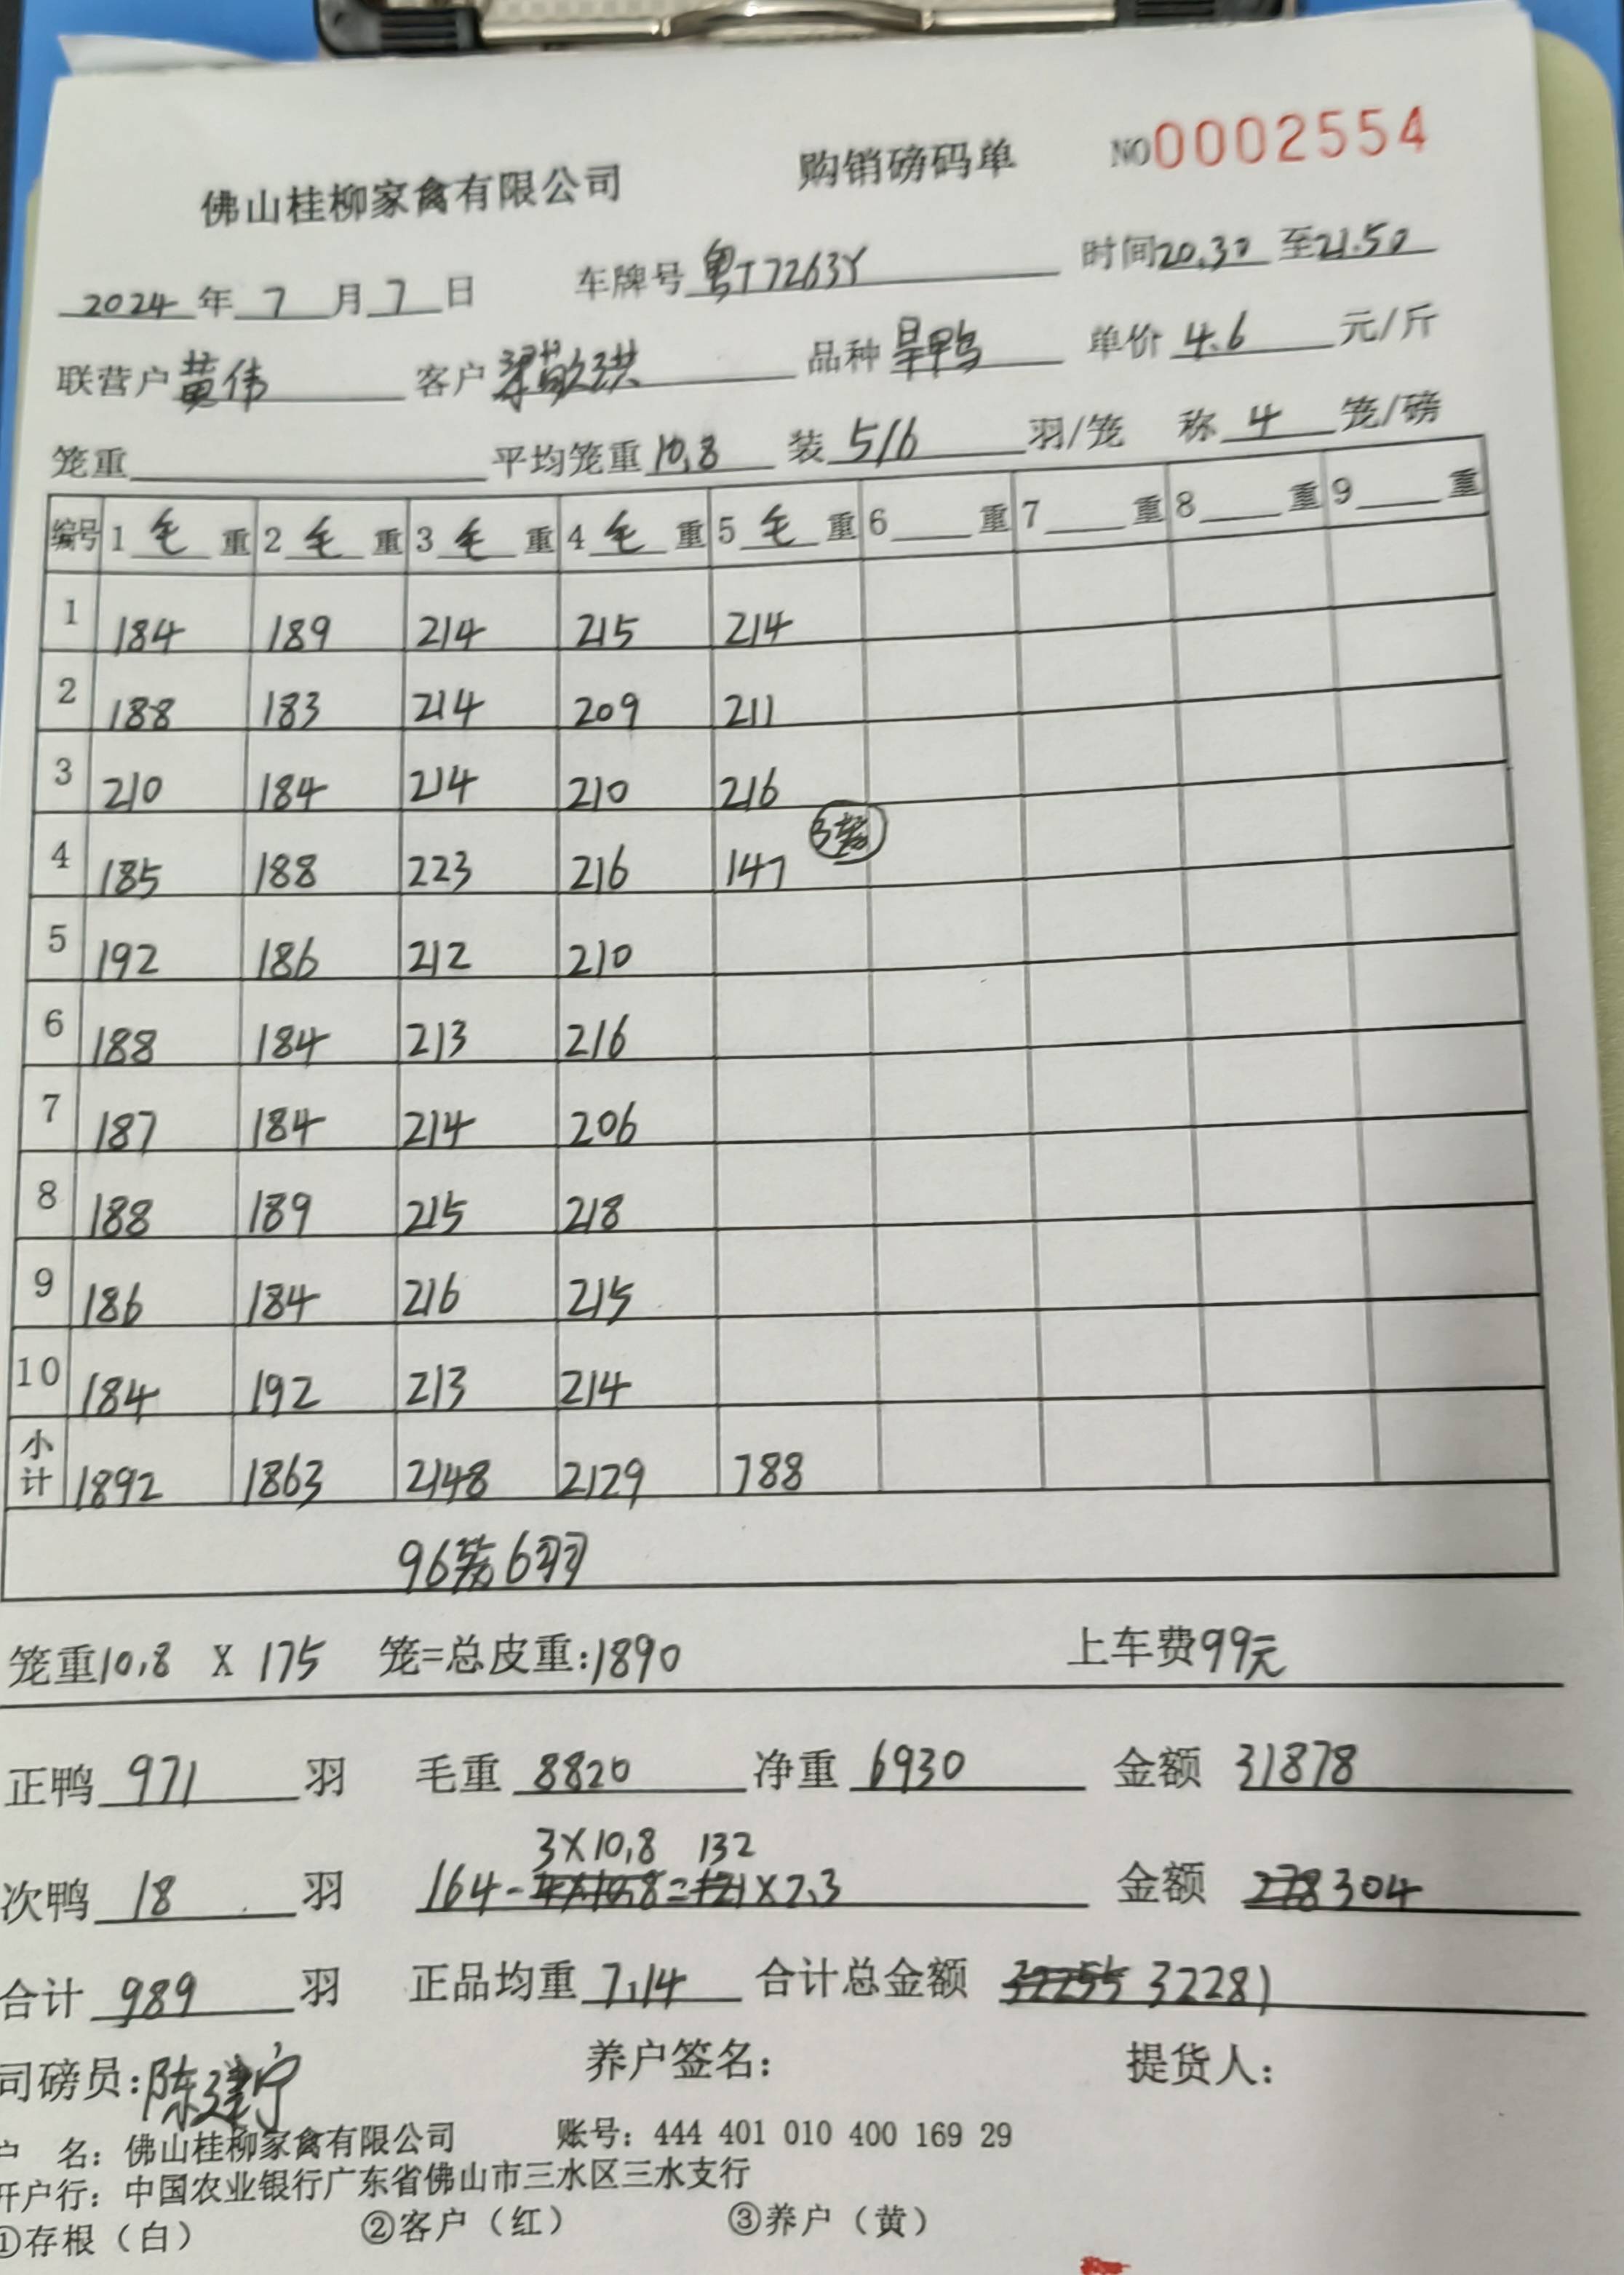 佛山桂柳家禽有限公司 购销磅码单 NO0002554
2024年7月7日 车牌号粤T7263Y 时间20.30至21.50
联营户黄伟 客户 品种旱鸭 单价4.6元/斤
笼重 平均笼重10.8 装5/6羽/笼 称4笼/磅
编号 1毛重 2毛重 3毛重 4毛重 5毛重 6重 7重 8重 9重
1 184 189 214 215 214
2 188 183 214 209 211
3 210 184 214 210 216
4 185 188 223 216 147 3笼
5 192 186 212 210
6 188 184 213 216
7 187 184 214 206
8 188 189 215 218
9 186 184 216 215
10 184 192 213 214
小计 1892 1863 2148 2129 788
96笼6羽
笼重10.8 X 175 笼=总皮重:1890 上车费99元
正鸭971羽 毛重8820 净重6930 金额31878
3X10.8 132
次鸭18羽 164-4X10.8=121X2.3 金额278 304
合计989羽 正品均重7.14 合计总金额32255 32281
司磅员:陈建宁 养户签名: 提货人:
户 名: 佛山桂柳家禽有限公司 账号: 444 401 010 400 169 29
开户行: 中国农业银行广东省佛山市三水区三水支行
①存根（白） ②客户（红） ③养户（黄）